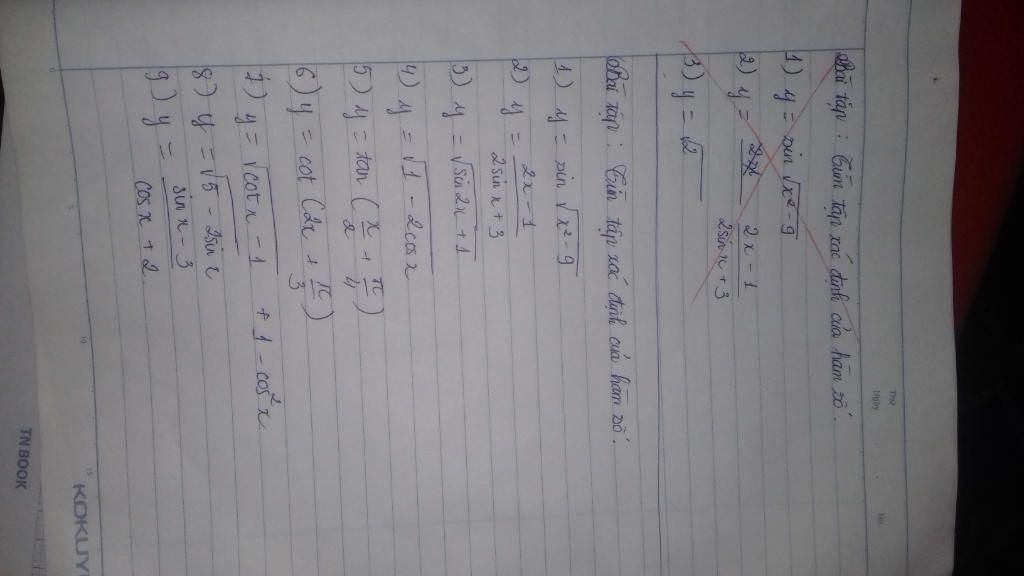 Thứ
Ngày
No.
Bài tập : Tìm tập xác định của hàm số.
1) y = sin √(x² - 9)
2) y = (2x - 1)/(2sin x + 3)
3) y = √2
Bài tập : Tìm tập xác định của hàm số.
1) y = sin √(x² - 9)
2) y = (2x - 1)/(2sin x + 3)
3) y = √(sin 2x + 1)
4) y = √(1 - 2cos x)
5) y = tan (x/2 + π/4)
6) y = cot (2x + π/3)
7) y = √(cot x - 1) + 1 - cos² x
8) y = √(5 - 2sin x)
9) y = (sin x - 3)/(cos x + 2)
0 5 10 15
TNBOOK
KOKUY